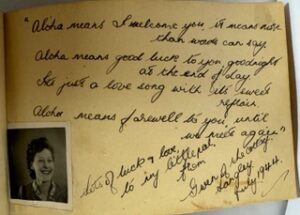 "Aloha means I welcome you, it means more
than words can say
Aloha means good luck to you, goodnight
at the end of day
It's just a love song with its sweet
refrain.
Aloha means farewell to you, until
we meet again."
Lots of luck & love,
to my little pal
from
Gwen of the
Langley
July 1944.